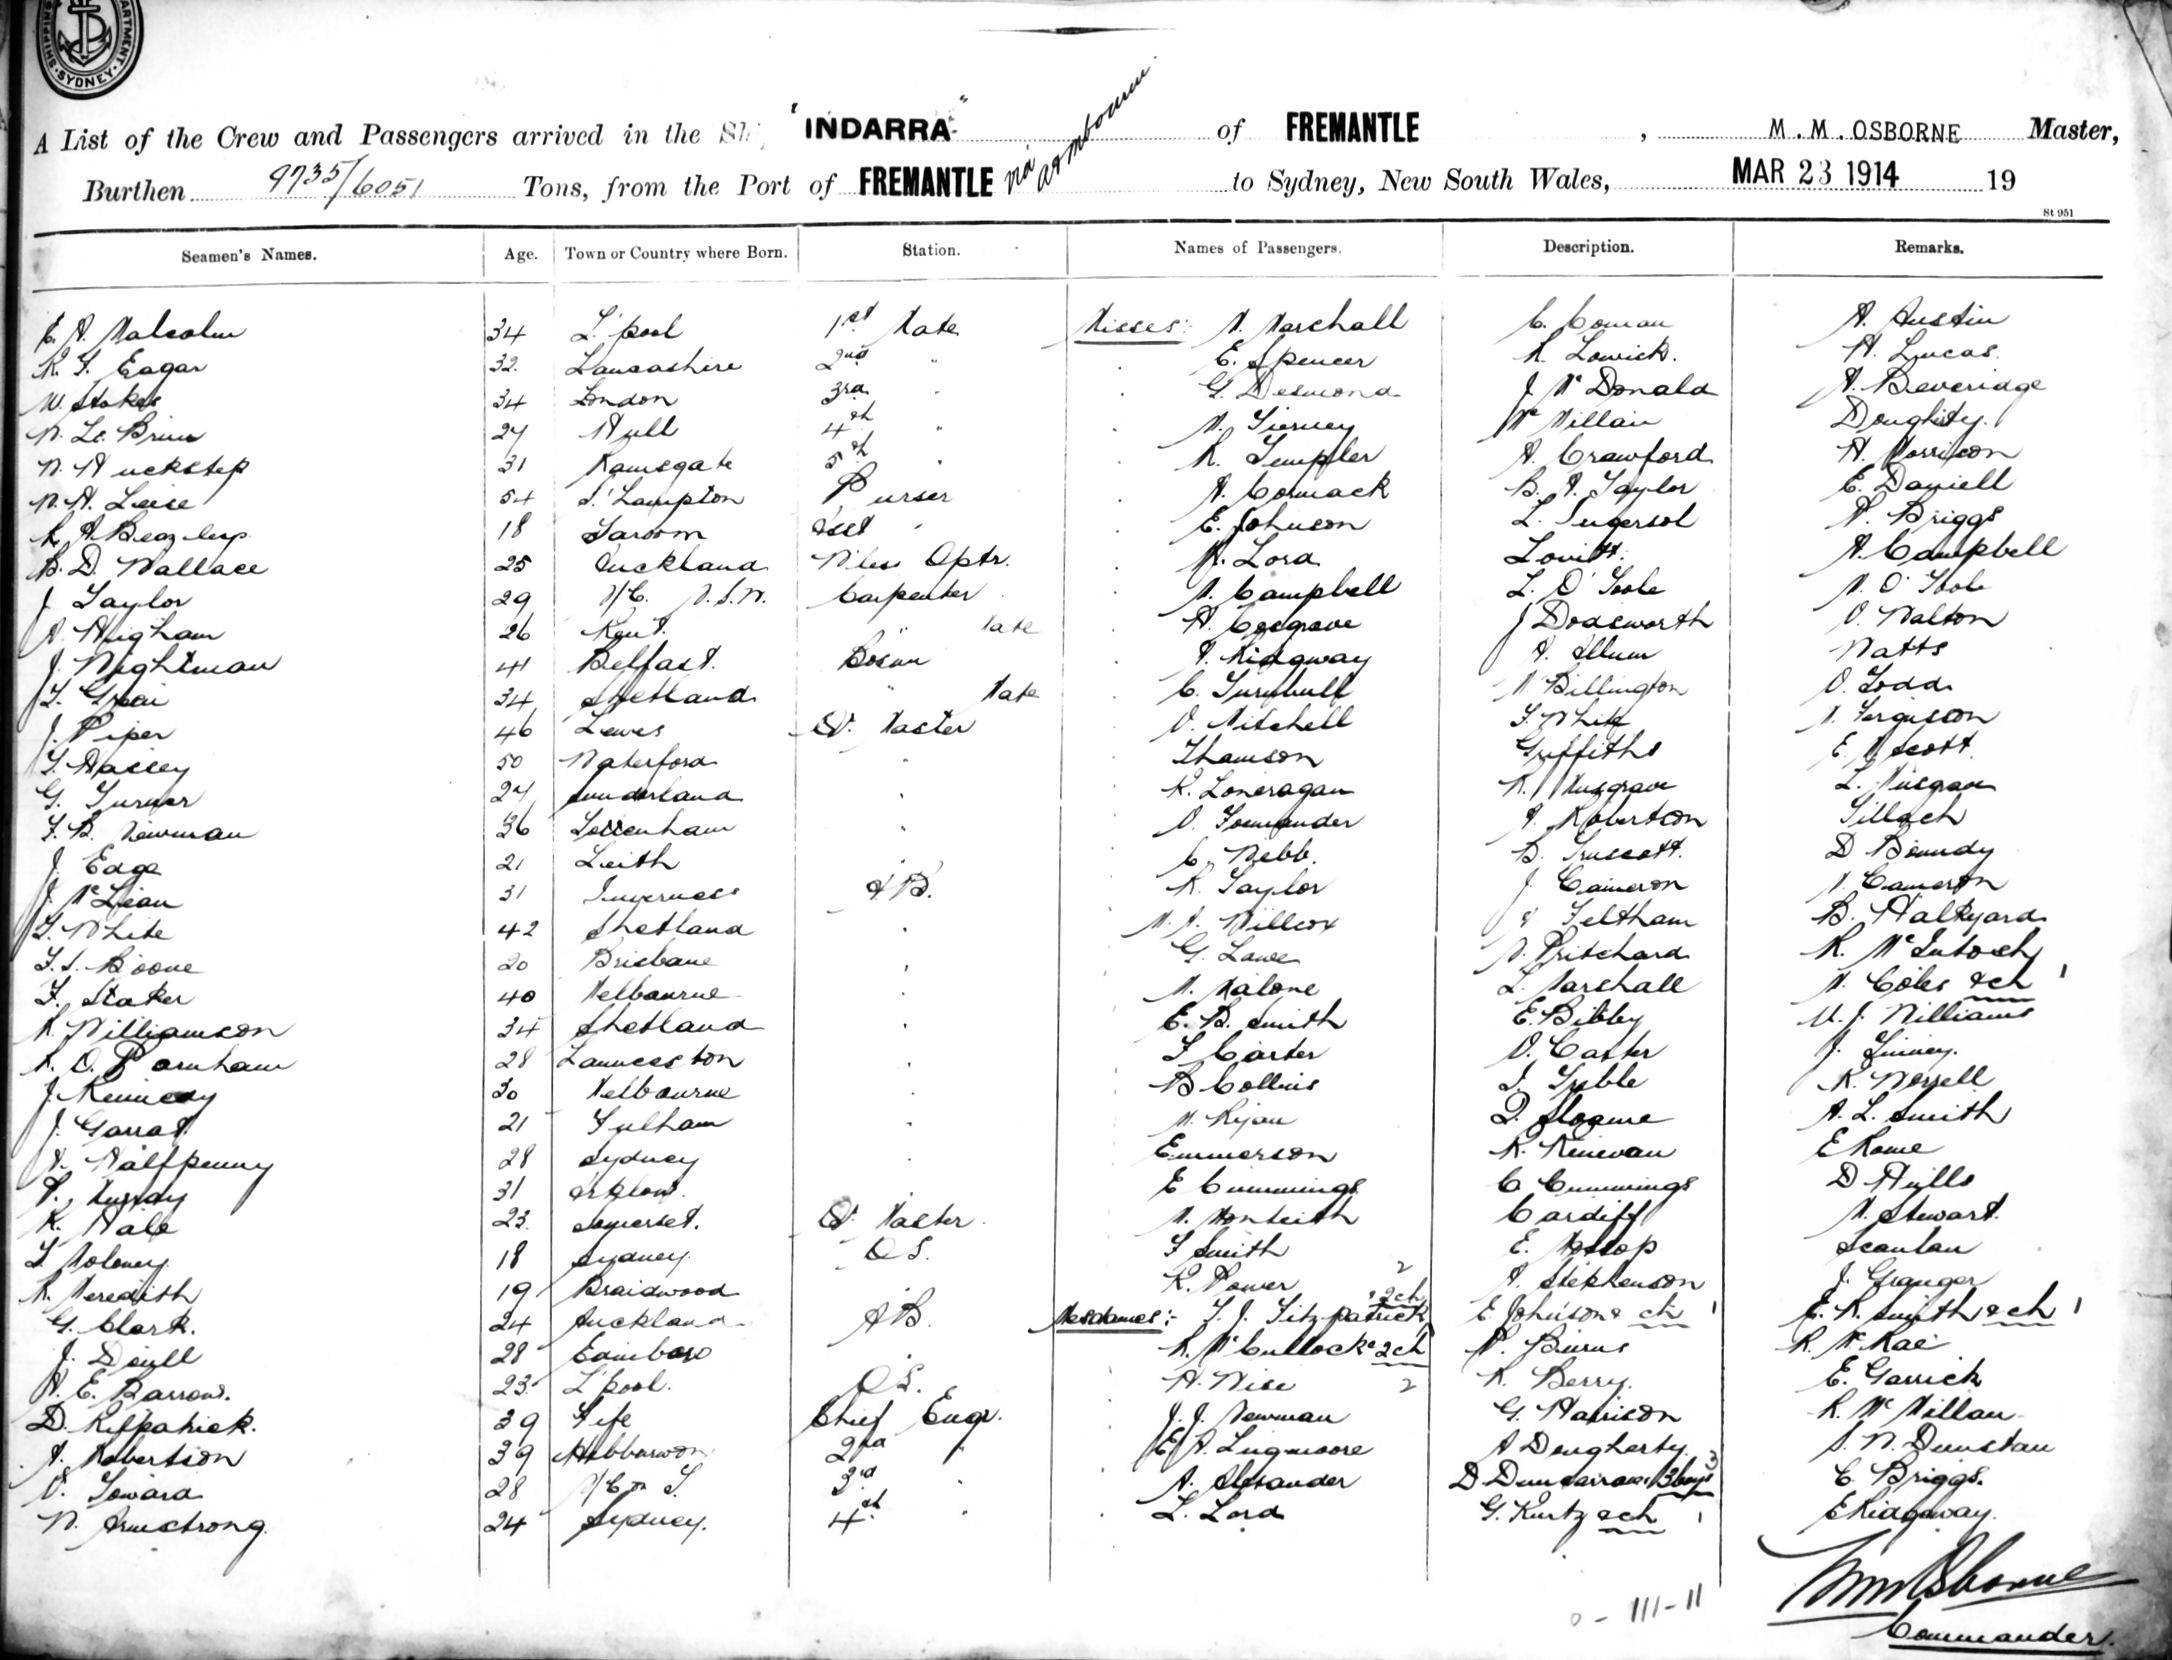 SHIPPING DEPARTMENT. SYDNEY.
A List of the Crew and Passengers arrived in the Ship "INDARRA" of FREMANTLE, M. M. OSBORNE Master,
Burthen 9735/6051 Tons, from the Port of FREMANTLE via to Sydney, New South Wales, MAR 23 1914 19
St 951
Seamen's Names. Age. Town or Country where Born. Station. Names of Passengers. Description. Remarks.
E. A. Malcolm 34 L'pool 1st Mate Misses:- M. Marshall C. Coman A. Austin
R. F. Eagar 32 Lancashire 2nd " E. Spencer R. Lowick. H. Lucas.
W. Stokes 34 London 3rd " G. Desmond J. McDonald A. Beveridge
27 Hull 4th " M. Tierney McMillan Doughty.
W. Huckstep 31 Ramsgate 5th " R. Templer A. Crawford H. Morrison
W. H. 54 S'Hampton Purser A. Cormack B. A. Taylor E. Daniell
R. A. 18 Taroom Asst " E. Johnson L. Ingersol A. Briggs
B. D. Wallace 25 Auckland W'less Optr. M. Lord Lovitt. A. Campbell
J. Taylor 29 N/C. N.S.W. Carpenter M. Campbell L. O'Toole M. O'Toole
A. Higham 26 Kent. " Mate A. Cosgrove J Dodsworth O. Walton
J. Wightman 41 Belfast. Bosun A. Ridgway A. Allum Watts
34 Shetland " Mate C. Turnbull M. Billington O. Todd
J. Piper 46 Lewes Qr. Master V. Mitchell F. White M. Ferguson
50 Waterford " Thomson Griffiths E. M Scott
G. Turner 27 Sunderland " K. Loneragan R. Musgrave L.
F. B. Newman 36 Tottenham " A. Robertson Tilloch
J. Edge 21 Leith " C. Webb. B. Truscott. D
J. McLean 31 Inverness A.B. R. Taylor J. Cameron M. Cameron
F. White 42 Shetland " M. A. Willcox A Feltham B. Halkyard
F. S. Boone 20 Brisbane " G. Lowe M. Pritchard R. McIntosh
F. Staker 40 Melbourne " M. Malone L. Marshall M. Coles & ch 1
R. Williamson 34 Shetland " E. B. Smith E. Bibby M. J. Williams
R. O. Barnham 28 Launceston " F Carter V. J.
J. Kennedy 30 Melbourne " B Collins J. K.
J. Garrat. 21 Fulham " M. Ryan Sloane A. L. Smith
A. Halfpenny 28 Sydney " Emmerson K. E Rowe
P. 31 " E Cummings C Cummings D Hylls
R. Hale 23 Somerset. Qr. Master M. Monteith Cardiff M. Stewart.
F Moloney 18 Sydney. O S. F Smith E. Scanlan
R. Meredith 19 Braidwood " K. Power A. Stephenson J. Granger
G. Clark. 24 Auckland A B. Mesdames:- F. J. Fitzpatrick & 2ch 2 E Johnson & ch 1 E. R. Smith & ch 1
J. 28 Edinboro " R. McCullock & 2ch 2 P. Burns R. McRae
A. E. Barrow. 23 L'pool. O S. A. Wise R. Berry. E. Garrick
D. Kilpatrick. 39 Fife Chief Engr. J. J. Newman G. Harrison R. McMillan
A. Robertson 39 2nd " E. A. A Dougherty. S. W. Dunstan
28 3rd " A. Alexander D 3 boys 3 C. Briggs.
W. Armstrong 24 Sydney. 4th " L. Lord G. Kurtz & ch 1 E Ridgway.
0 - 111-11
M M Osborne
Commander.